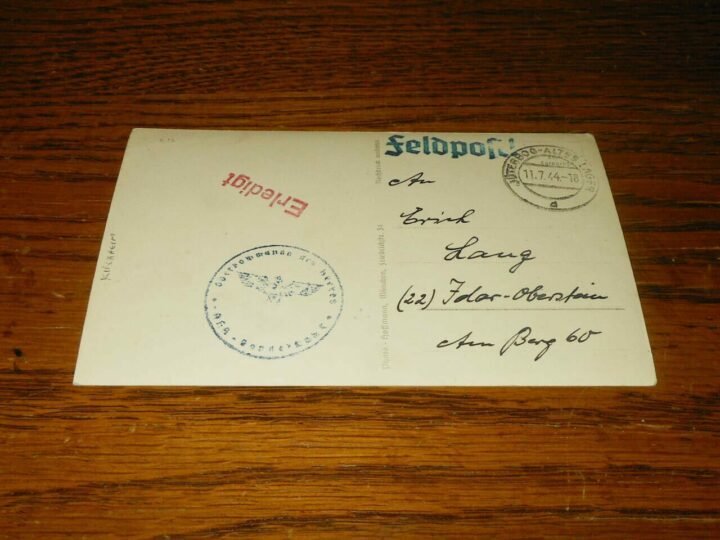 Feldpost!
JÜTERBOG-ALTES LAGER
11.7.44.-18
a
Erledigt
Oberkommando des Heeres
An
Erich
Lang
(22) Idar-Oberstein
Am Berg 60
Photo-Hoffmann, München,